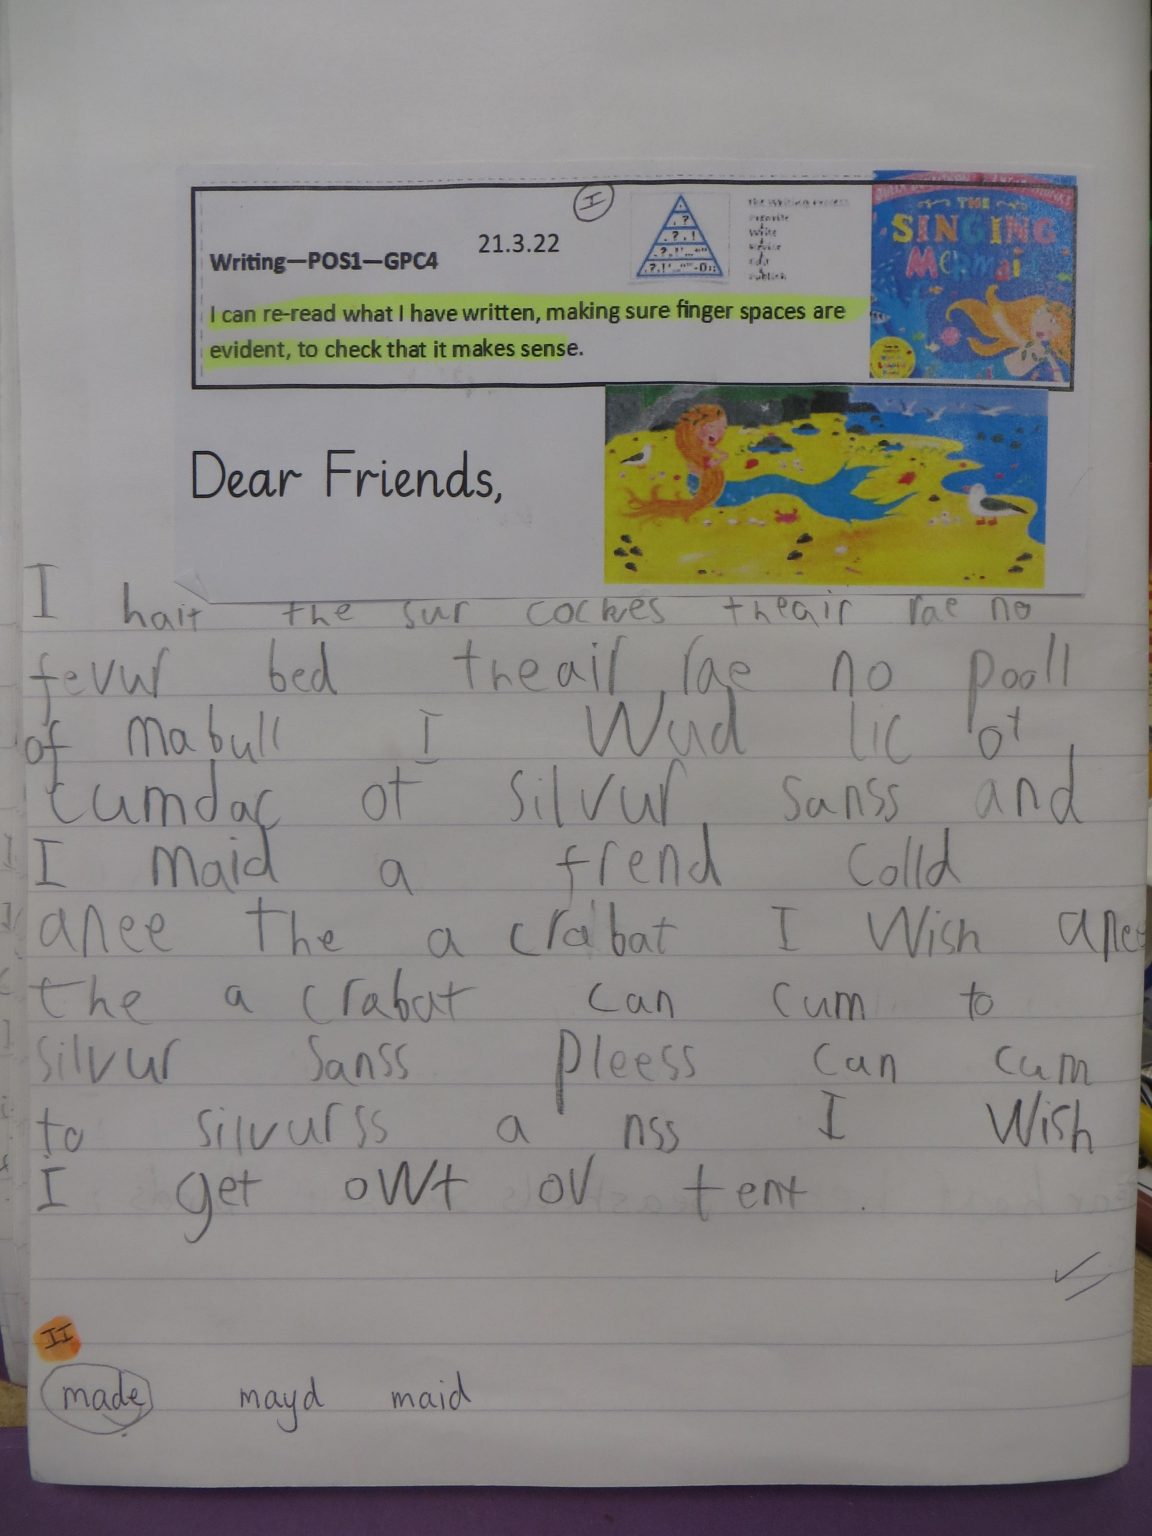 I
21.3.22
Writing—POS1—GPC4
I can re-read what I have written, making sure finger spaces are
evident, to check that it makes sense.
The Writing Process
Write
Revise
Edit
Publish
THE
SINGING
Mermaid
Dear Friends,
I hait the sur cockes theair rae no
fevur bed theair rae no pooll
of mabull I Wud lic ot
cumdac ot silvur sanss and
I maid a frend colld
anee the a crabat I Wish anee
the a crabat can cum to
silvur sanss pleess can cam
to silvurss a nss I Wish
I get owt ov tent .
II
made mayd maid